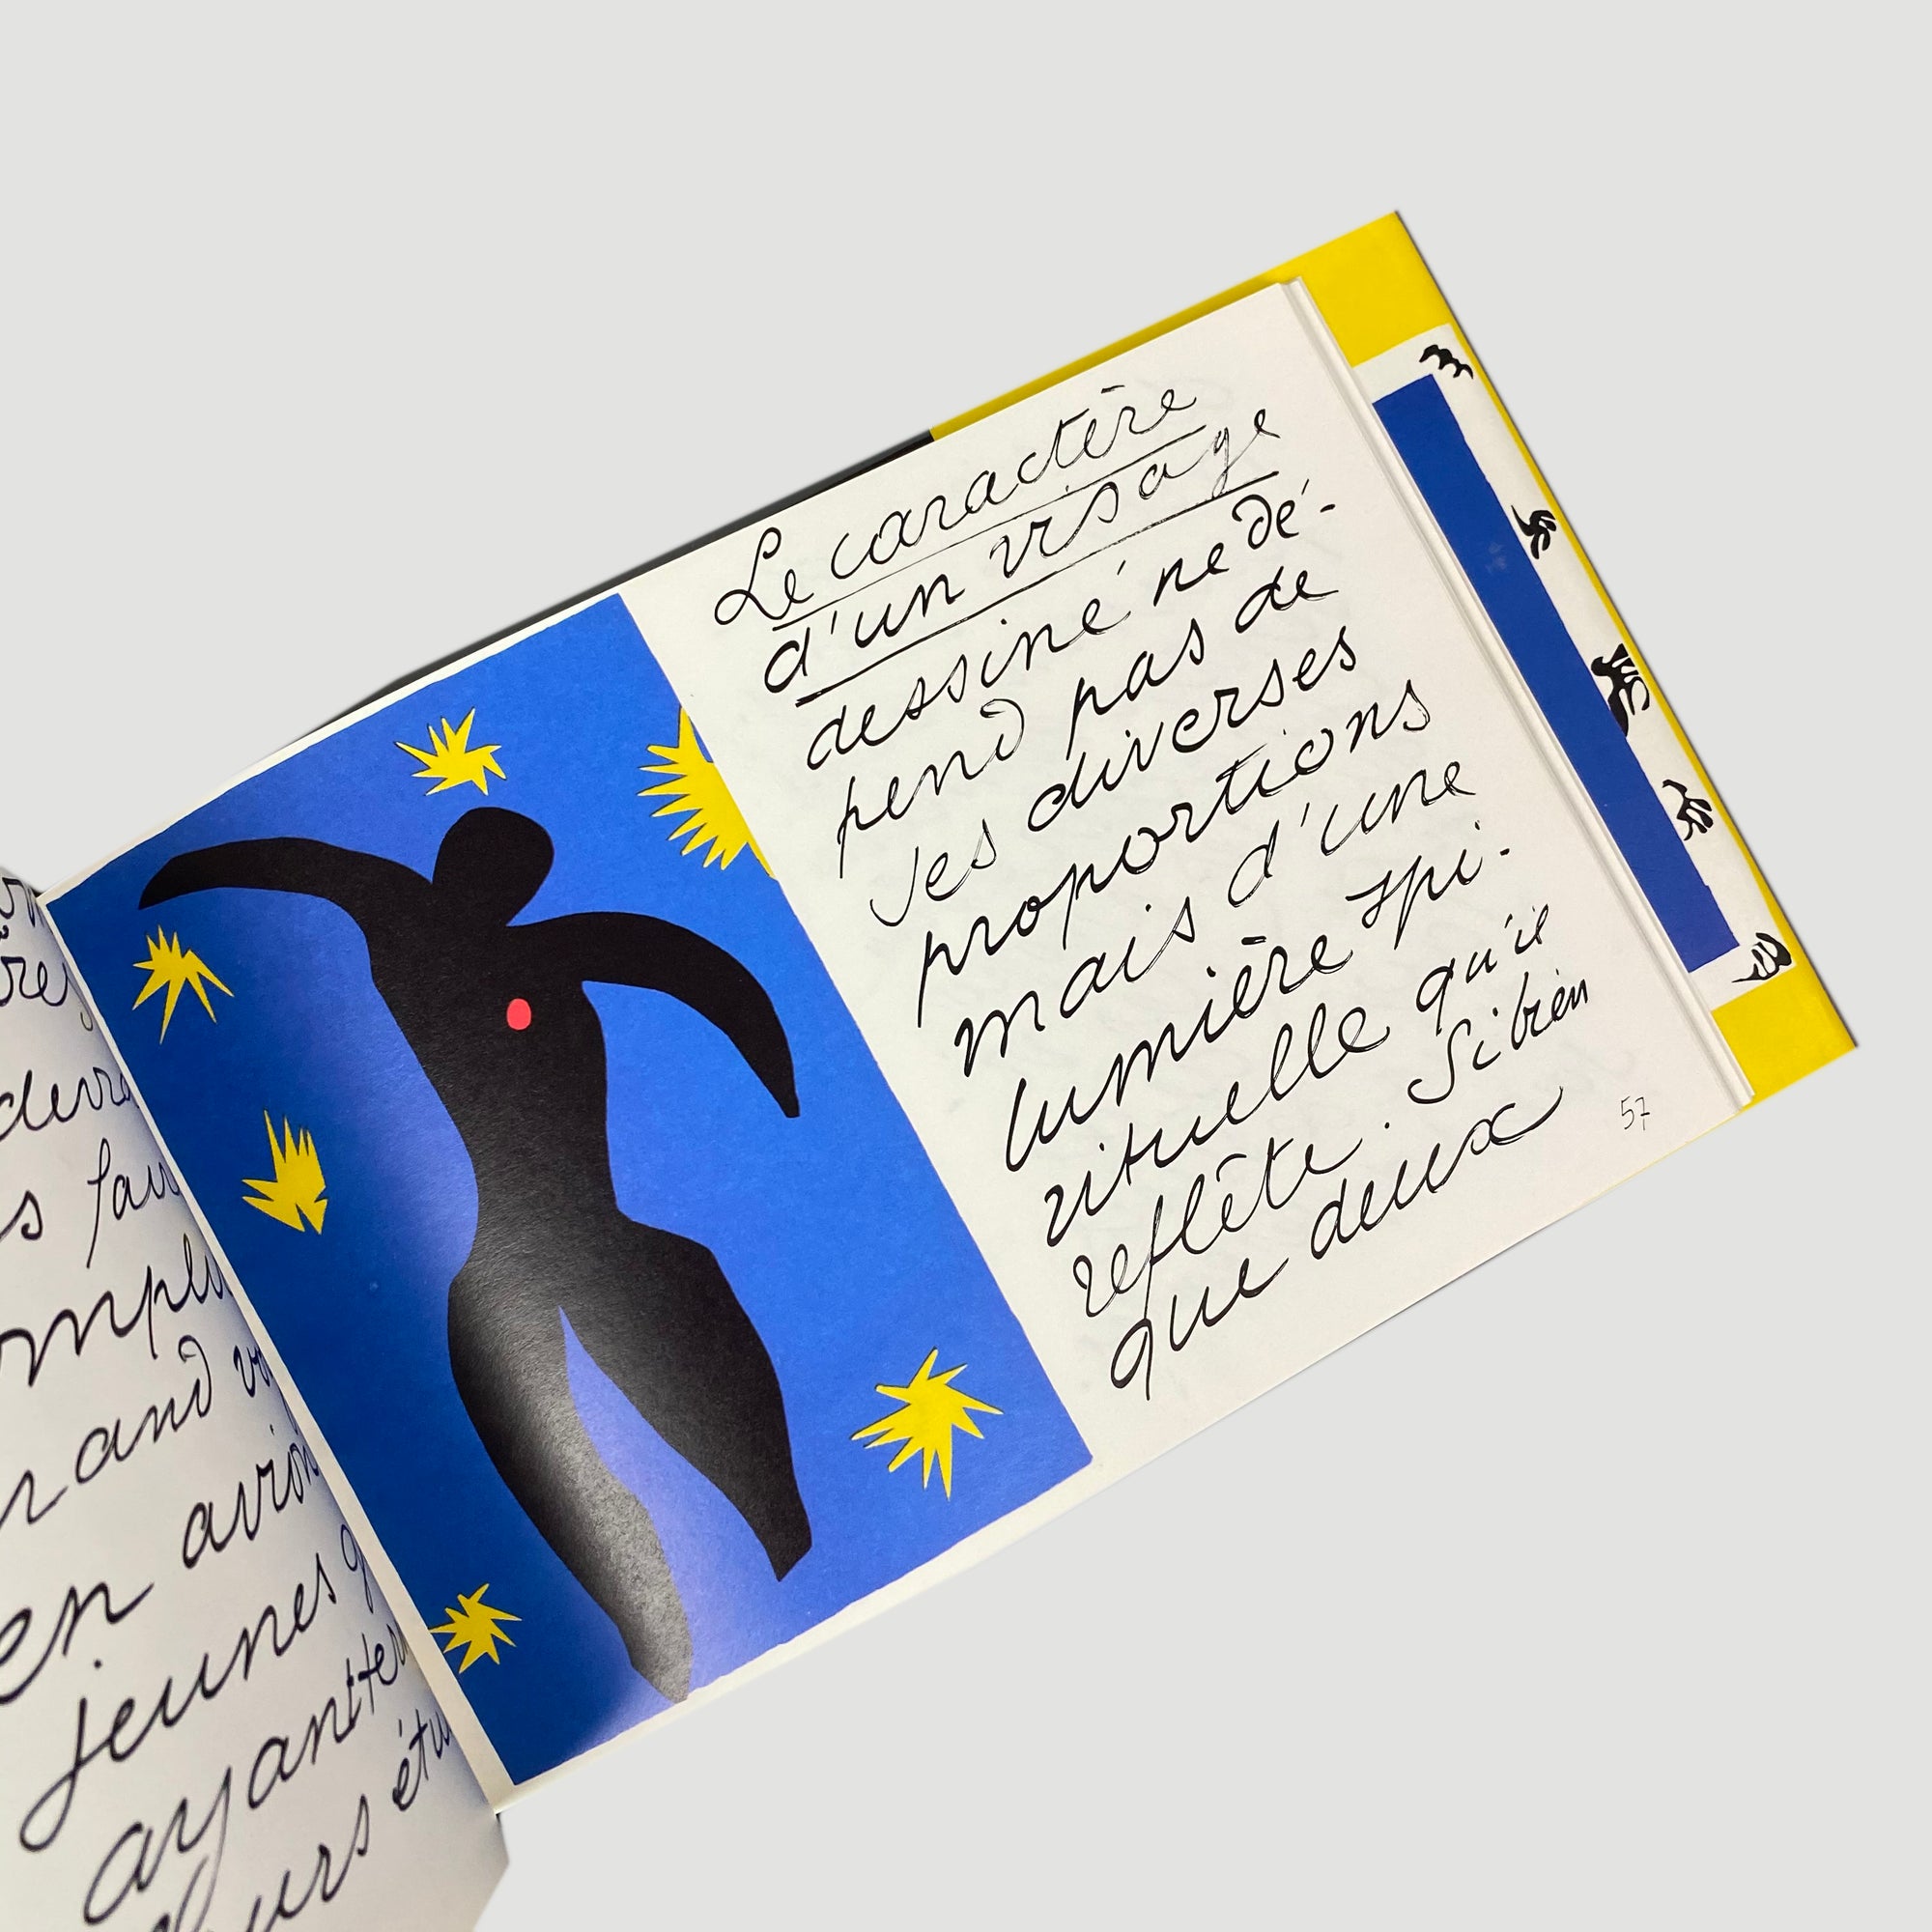 devra
grand
en avion
jeunes
ayant
Le caractère
d'un visage
dessiné ne dé-
pend pas de
ses diverses
proportions
mais d'une
lumière spi-
rituelle qu'il
reflète. Si bien
que deux
57